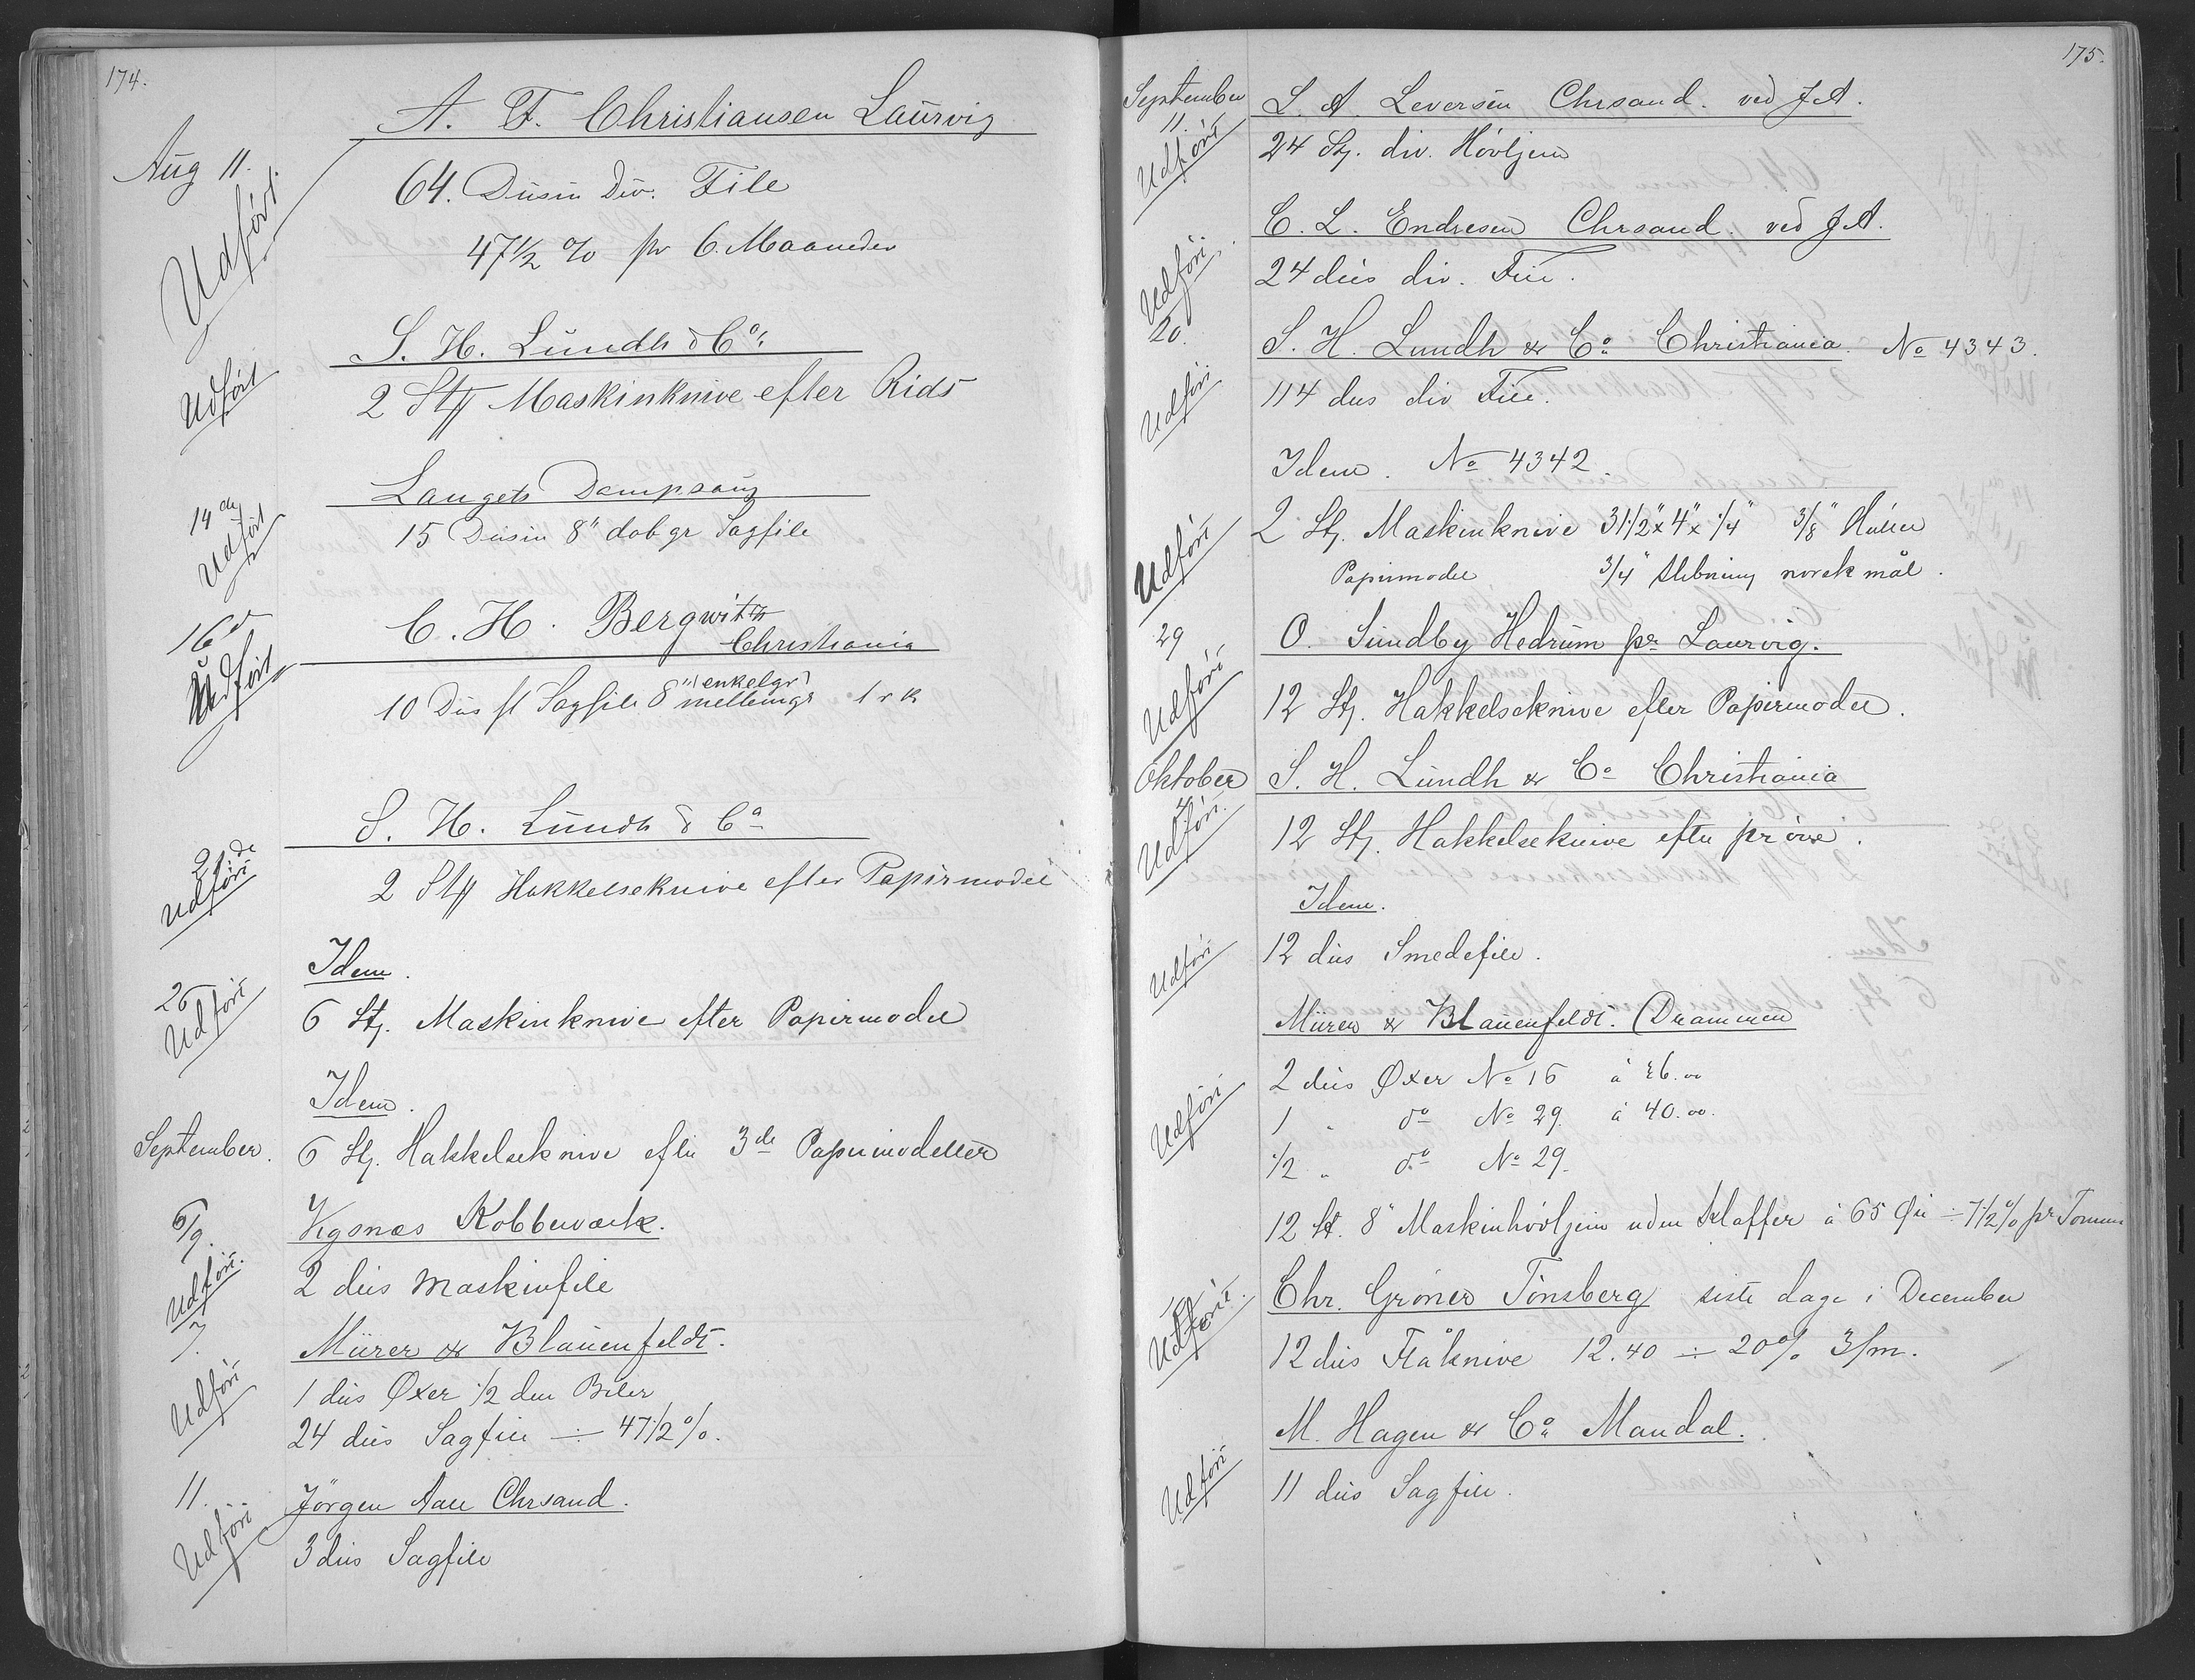 174.
A. F. Christiansen Laurvig
Aug 11.
Udført.
64. Dusin Div. File
47 1/2 % pr 6. Maaneder
S. H. Lundh & Co.
Udført
2 Stk Maskinknive efter Rids
Langets Dampsaug
14de
Udført
15 Dusin 8" dob gr Sagfile
16de
Udført
C. H. Bergwitz
Christiania
10 Dus fl Sagfile 8" enkelgr
mellemgr 1 r k
S. H. Lundh & Co
21de
Udført
2 Stk Hakkelseknive efter Papirmodel
Idem.
26
Udført
6 Stk. Maskinknive efter Papirmodel
Idem.
September.
6 Stk. Hakkelseknive efter 3de Papirmodeller
6/9.
Vigsnæs Kobberværk.
Udført.
2 dus Maskinfile
7.
Mürer & Blauenfeldt.
Udført
1 dus Øxer 1/2 dus Biler
24 dus Sagfile ÷ 47 1/2 %.
11.
Jörgen Aall Chrsand.
Udført
3 dus Sagfile
175.
September
11.
L. A. Leversen Chrsand. ved J.A.
Udført
24 Stk. div. Hövljern
C. L. Endresen Chrsand. ved J.A.
Udført.
24 dus div. File.
20.
S. H. Lundh & Co Christiania. No 4343.
Udført
114 dus div File.
Idem. No 4342.
2 Stk. Maskinknive 31 1/2" x 4" x 1/4" 3/8" Huller
Udført
Papirmodel 3/4" Slibning norsk mål.
29
O. Sundby Hedrum pr Laurvig.
Udført
12 Stk. Hakkelseknive efter Papirmodel.
Oktober
4
S. H. Lundh & Co Christiania
Udført.
12 Stk. Hakkelseknive efter pröve.
Idem.
Udført
12 dus Smedefile.
Mürer & Blauenfeldt. (Drammen
2 dus Øxer No 16 á 26.00
Udført
1 " do No 29. á 40.00.
1/2 " do No 29.
12 St. 8" Maskinhövljern uden Klaffer á 65 Öre ÷ 7 1/2 % pr Tomme
Chr. Gröner Tönsberg siste dage i December
Udført.
12 dus Flåknive 12.40 ÷ 20% 3/m.
M. Hagen & Co Mandal.
Udført
11 dus Sagfile.